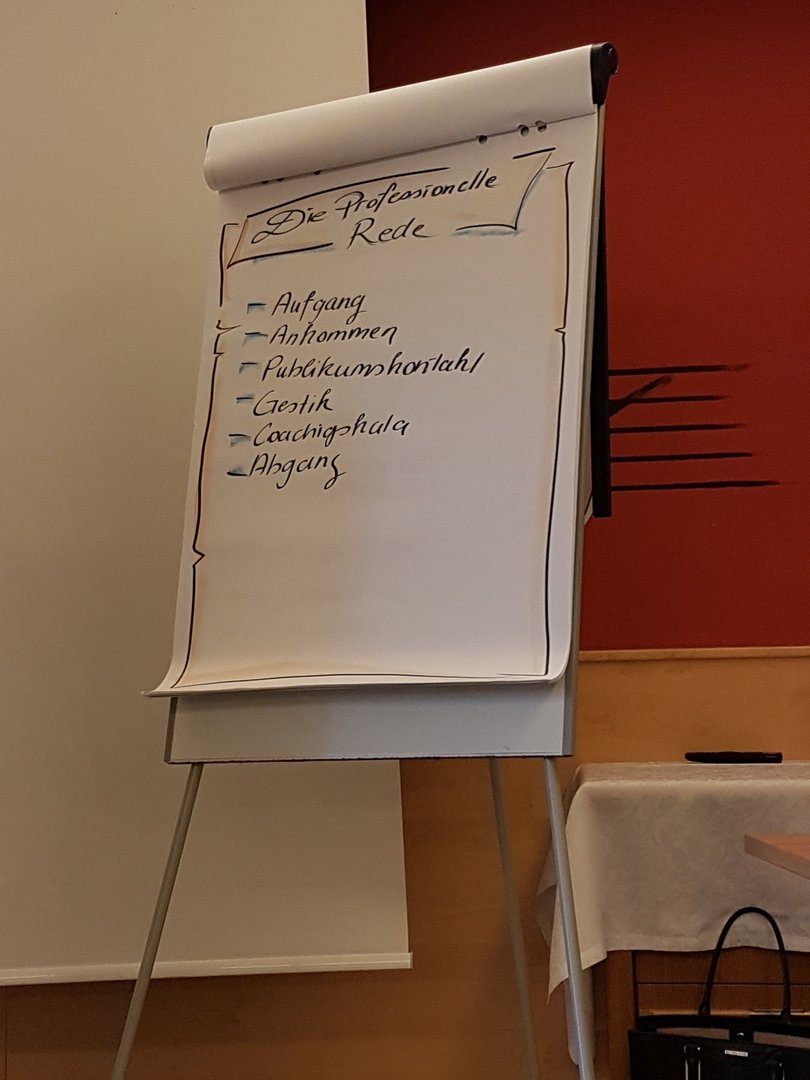 Die Professionelle
Rede
- Aufgang
- Ankommen
- Publikumskontakt
- Gestik
- Coachigskala
- Abgang